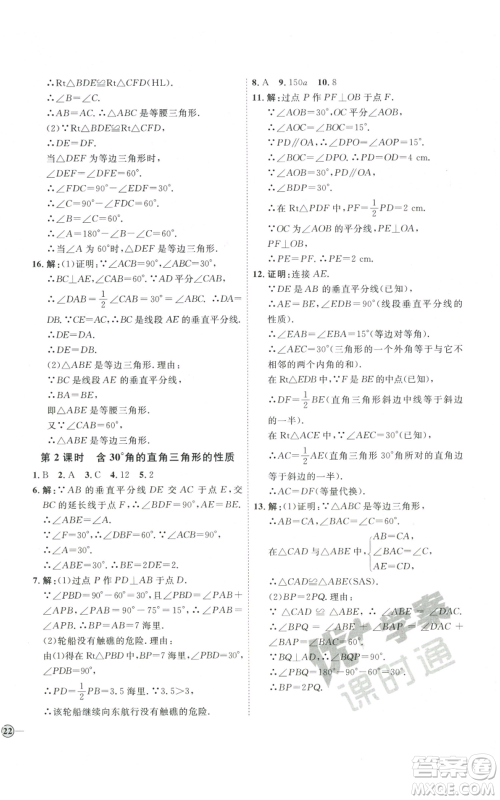 ∴Rt△BDE≌Rt△CFD(HL).
∴∠B=∠C.
∴AB=AC.∴△ABC是等腰三角形.
(2)∵Rt△BDE≌Rt△CFD,
∴DE=DF.
当△DEF为等边三角形时,
∠DEF=∠DFE=60°.
∴∠FDC=90°-∠EDF=30°.
∴∠C=90°-∠FDC=60°.
∴∠B=∠C=60°.
∴∠A=180°-∠B-∠C=60°.
∴当∠A=60°时,△DEF是等边三角形.
16.解:(1)证明:∵∠ACB=90°,∠ABC=30°,
∴∠CAB=60°.∵AD平分∠CAB,
∴∠DAB=1/2∠CAB=30°=∠ABC.∴DA=
DB.∵CE是线段AD的垂直平分线,
∴DE=DA.
∴DE=DB.
(2)△ABE是等边三角形.理由:
∵BC是线段AE的垂直平分线,
∴BA=BE,
即△ABE是等腰三角形.
又∵∠CAB=60°,
∴△ABE是等边三角形.
第2课时 含30°角的直角三角形的性质
1.B 2.A 3.C 4.12 5.2
6.解:∵AB的垂直平分线DE交AC于点E,交
BC的延长线于点F,
∴∠BDF=90°.
∵∠F=30°,∴∠DBF=60°.
∵∠ACB=90°,∴∠A=30°.
∴∠EBA=∠A=30°.∴BE=2DE=2.
7.解:(1)过点P作PD⊥AB于点D.
∵∠PBD=90°-60°=30°,且∠PBD=∠PAB+
∠APB,∠PAB=90°-75°=15°,∴∠PAB=
∠APB.∴BP=AB=7海里.
(2)轮船没有触礁的危险.理由:
由(1)得在Rt△PBD中,BP=7海里,∠PBD=
30°,
∴PD=1/2PB=3.5海里.∵3.5>3,
∴该轮船继续向东航行没有触礁的危险.
22
8.A 9.150a 10.8
11.解:过点P作PF⊥OB于点F.
∵∠AOB=30°,OC平分∠AOB,
∴∠AOC=∠BOC=15°.
∵PD//OA,∴∠DPO=∠AOP=15°.
∴∠BOC=∠DPO.∴PD=OD=4 cm.
∵∠AOB=30°,PD//OA,∴∠BDP=30°.
∴在Rt△PDF中,PF=1/2PD=2 cm.
∵OC为∠AOB的平分线,PE⊥OA,
PF⊥OB,
∴PE=PF.∴PE=PF=2 cm.
12.证明:连接AE.
∵DE是AB的垂直平分线(已知),
∴AE=BE,∠EDB=90°(线段垂直平分线的
性质).
∴∠EAB=∠EBA=15°(等边对等角).
∴∠AEC=30°(三角形的一个外角等于和它不
相邻的两个内角的和).
在Rt△EDF中,∵∠F=30°(已知),
∴DE=1/2EF(直角三角形斜边中线等于斜边
的一半).
∵∠AEC=30°,∠ACE=90°(已知),
∴AC=1/2AE(在直角三角形中,30°角所对直角边等于
斜边的一半).
∴AC=DF(等量代换).
13.解:(1)证明:∵△ABC为等边三角形,
∴∠BAC=∠C=60°,AB=CA.
AB=CA,
在△CAD与△ABE中,∠BAE=∠C,
AE=CD,
∴△CAD≌△ABE(SAS).
(2)BP=2PQ.理由:
∵△CAD≌△ABE,∴∠CAD=∠ABE.
∴∠BPQ=∠BAP+∠ABE=∠BAP+
∠CAD=∠BAC=60°.
∵BQ⊥AD,∴∠BQP=90°.
∴∠PBQ=30°.
∴BP=2PQ.
课时通